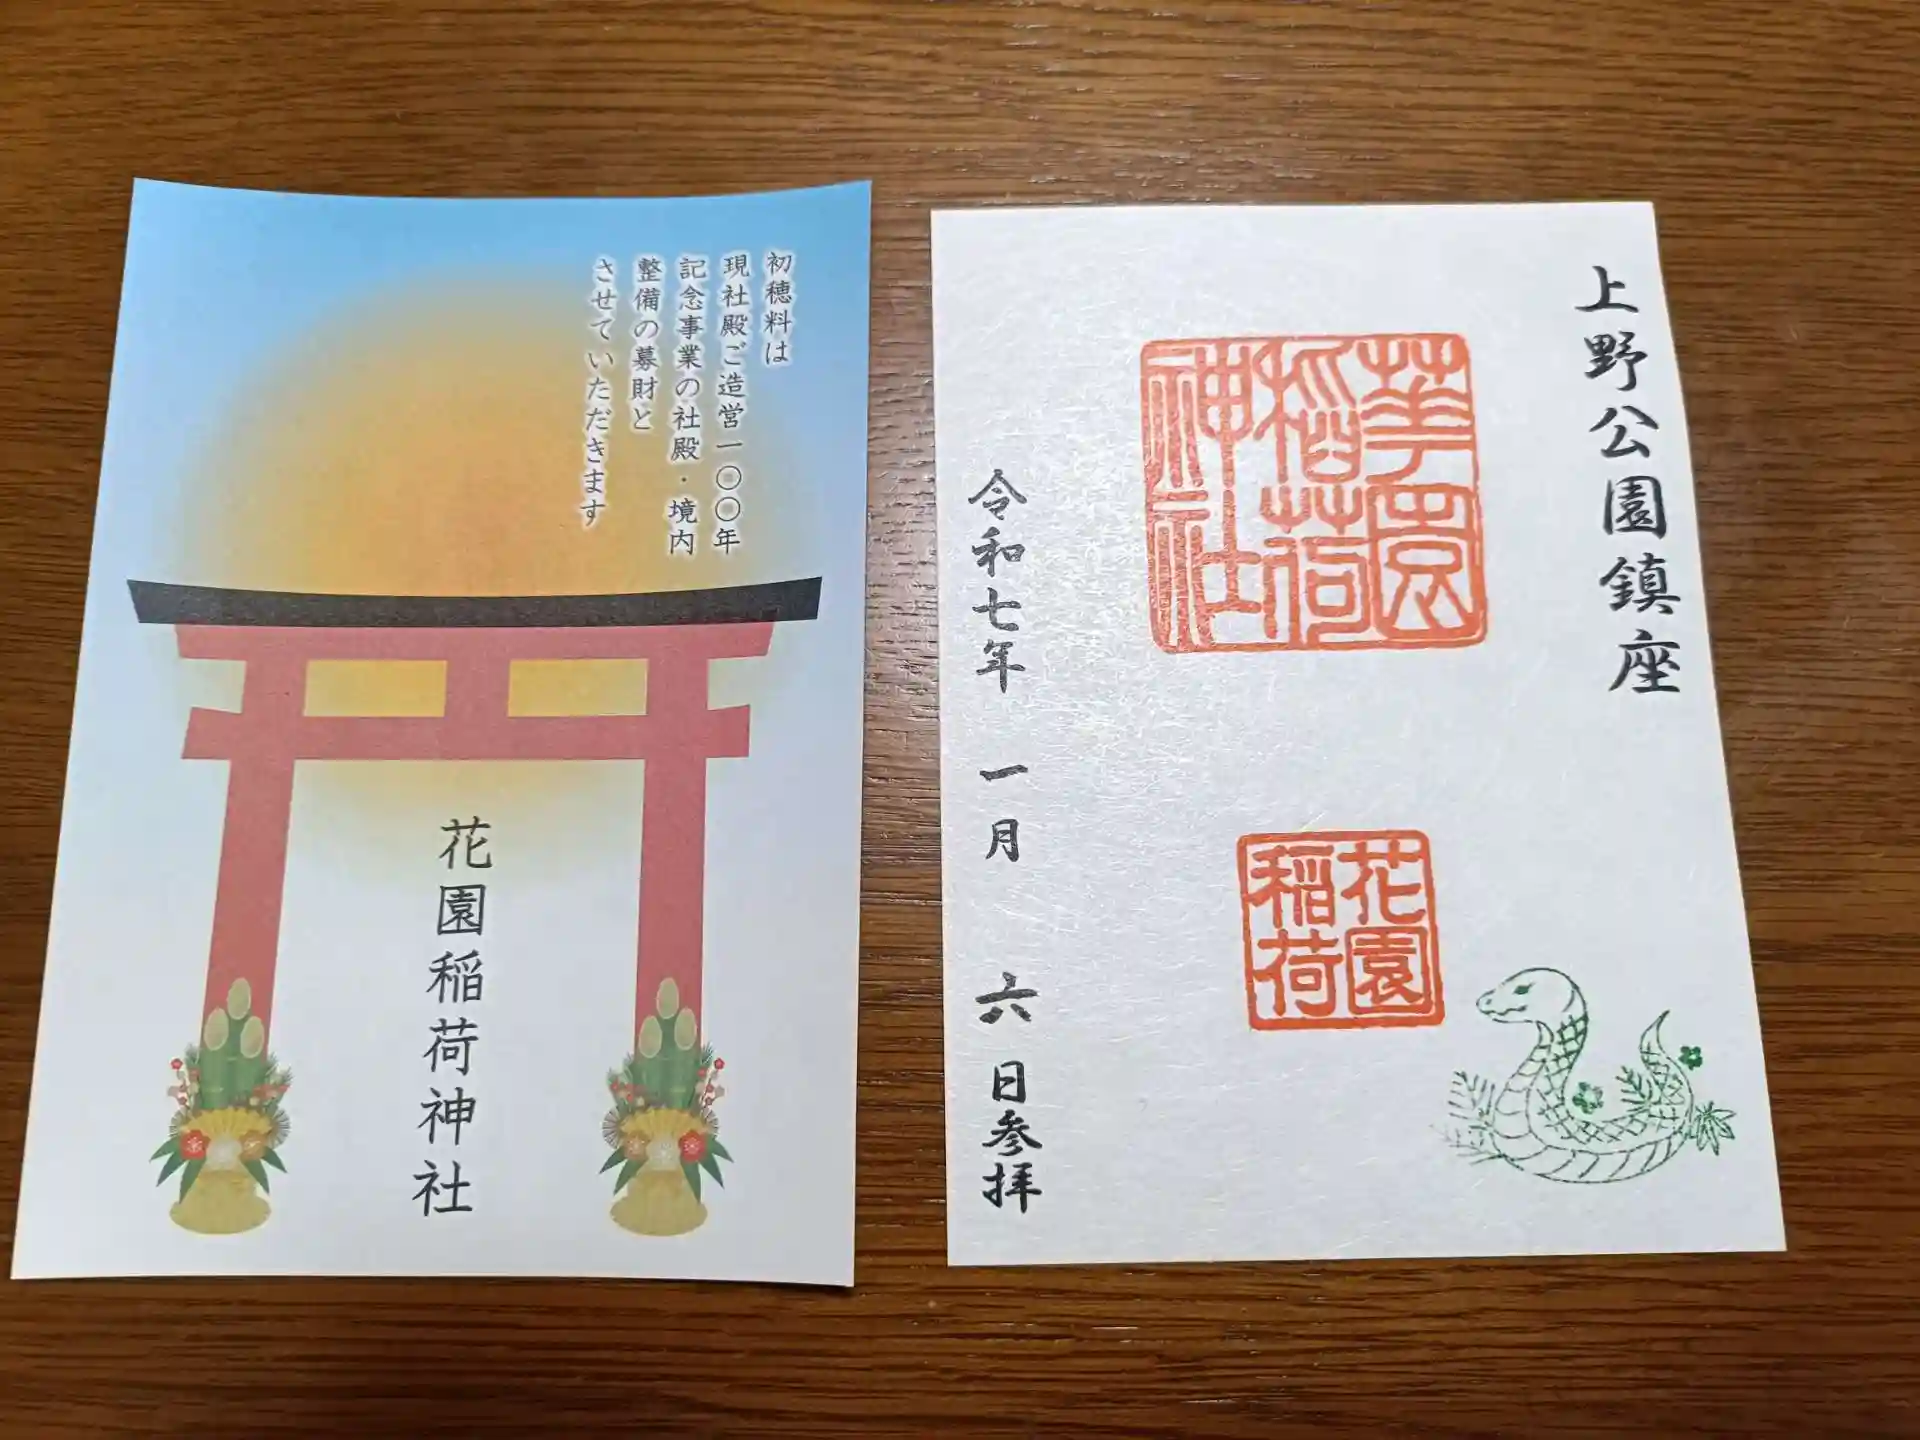 初穂料は
現社殿ご造営一〇〇年
記念事業の社殿・境内
整備の募財と
させていただきます
花園稲荷神社
上野公園鎮座
華園
稲荷
神社
花園
稲荷
令和七年 一月 六日参拝